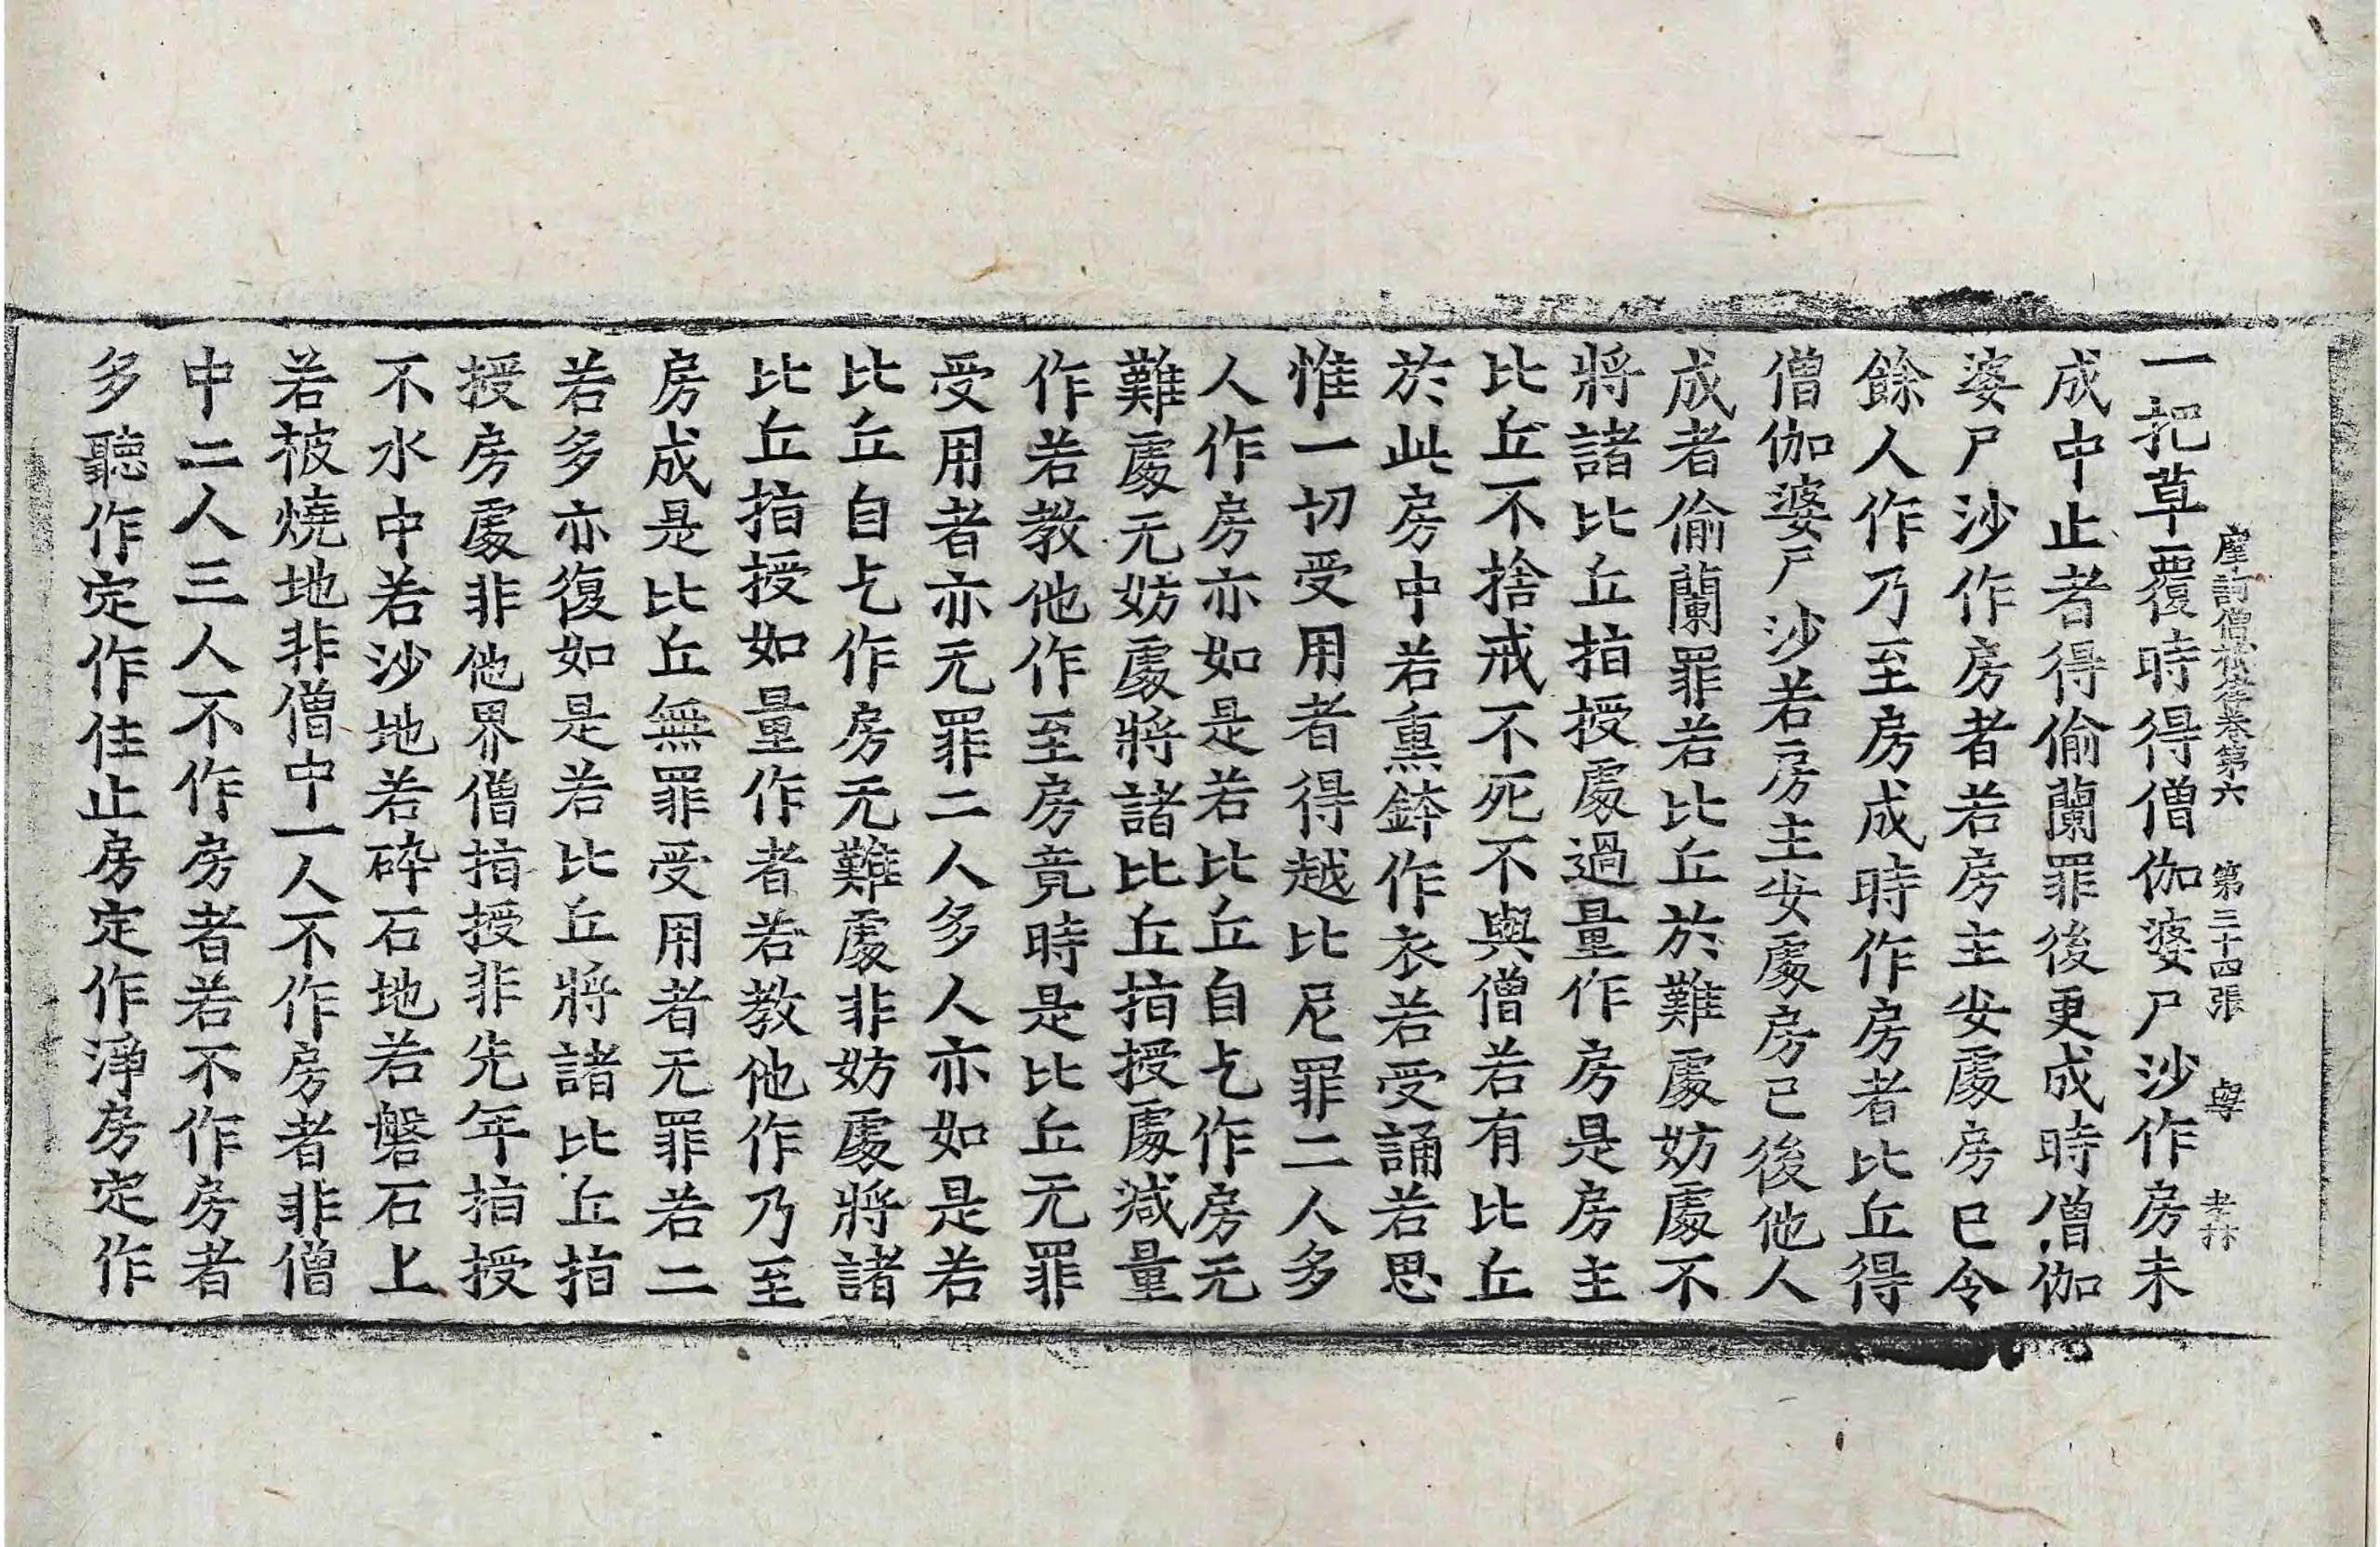 摩訶僧祇律卷第六 第三十四張 與
一把草覆時得僧伽婆尸沙作房未
成中止者得偷蘭罪後更成時僧伽
婆尸沙作房者若房主安處房已令
餘人作乃至房成時作房者比丘得
僧伽婆尸沙若房主安處房已後他人
成者偷蘭罪若比丘於難處妨處不
將諸比丘指授處過量作房是房主
比丘不捨戒不死不與僧若有比丘
於此房中若熏鉢作衣若受誦若思
惟一切受用者得越比尼罪二人多
人作房亦如是若比丘自乞作房无
難處无妨處將諸比丘指授處減量
作若教他作至房竟時是比丘无罪
受用者亦无罪二人多人亦如是若
比丘自乞作房无難處非妨處將諸
比丘指授如量作者若教他作乃至
房成是比丘無罪受用者无罪若二
若多亦復如是若比丘將諸比丘指
授房處非他界僧指授非先年指授
不水中若沙地若碎石地若磐石上
若被燒地非僧中一人不作房者非僧
中二人三人不作房者若不作房者
多聽作定作住止房定作淨房定作